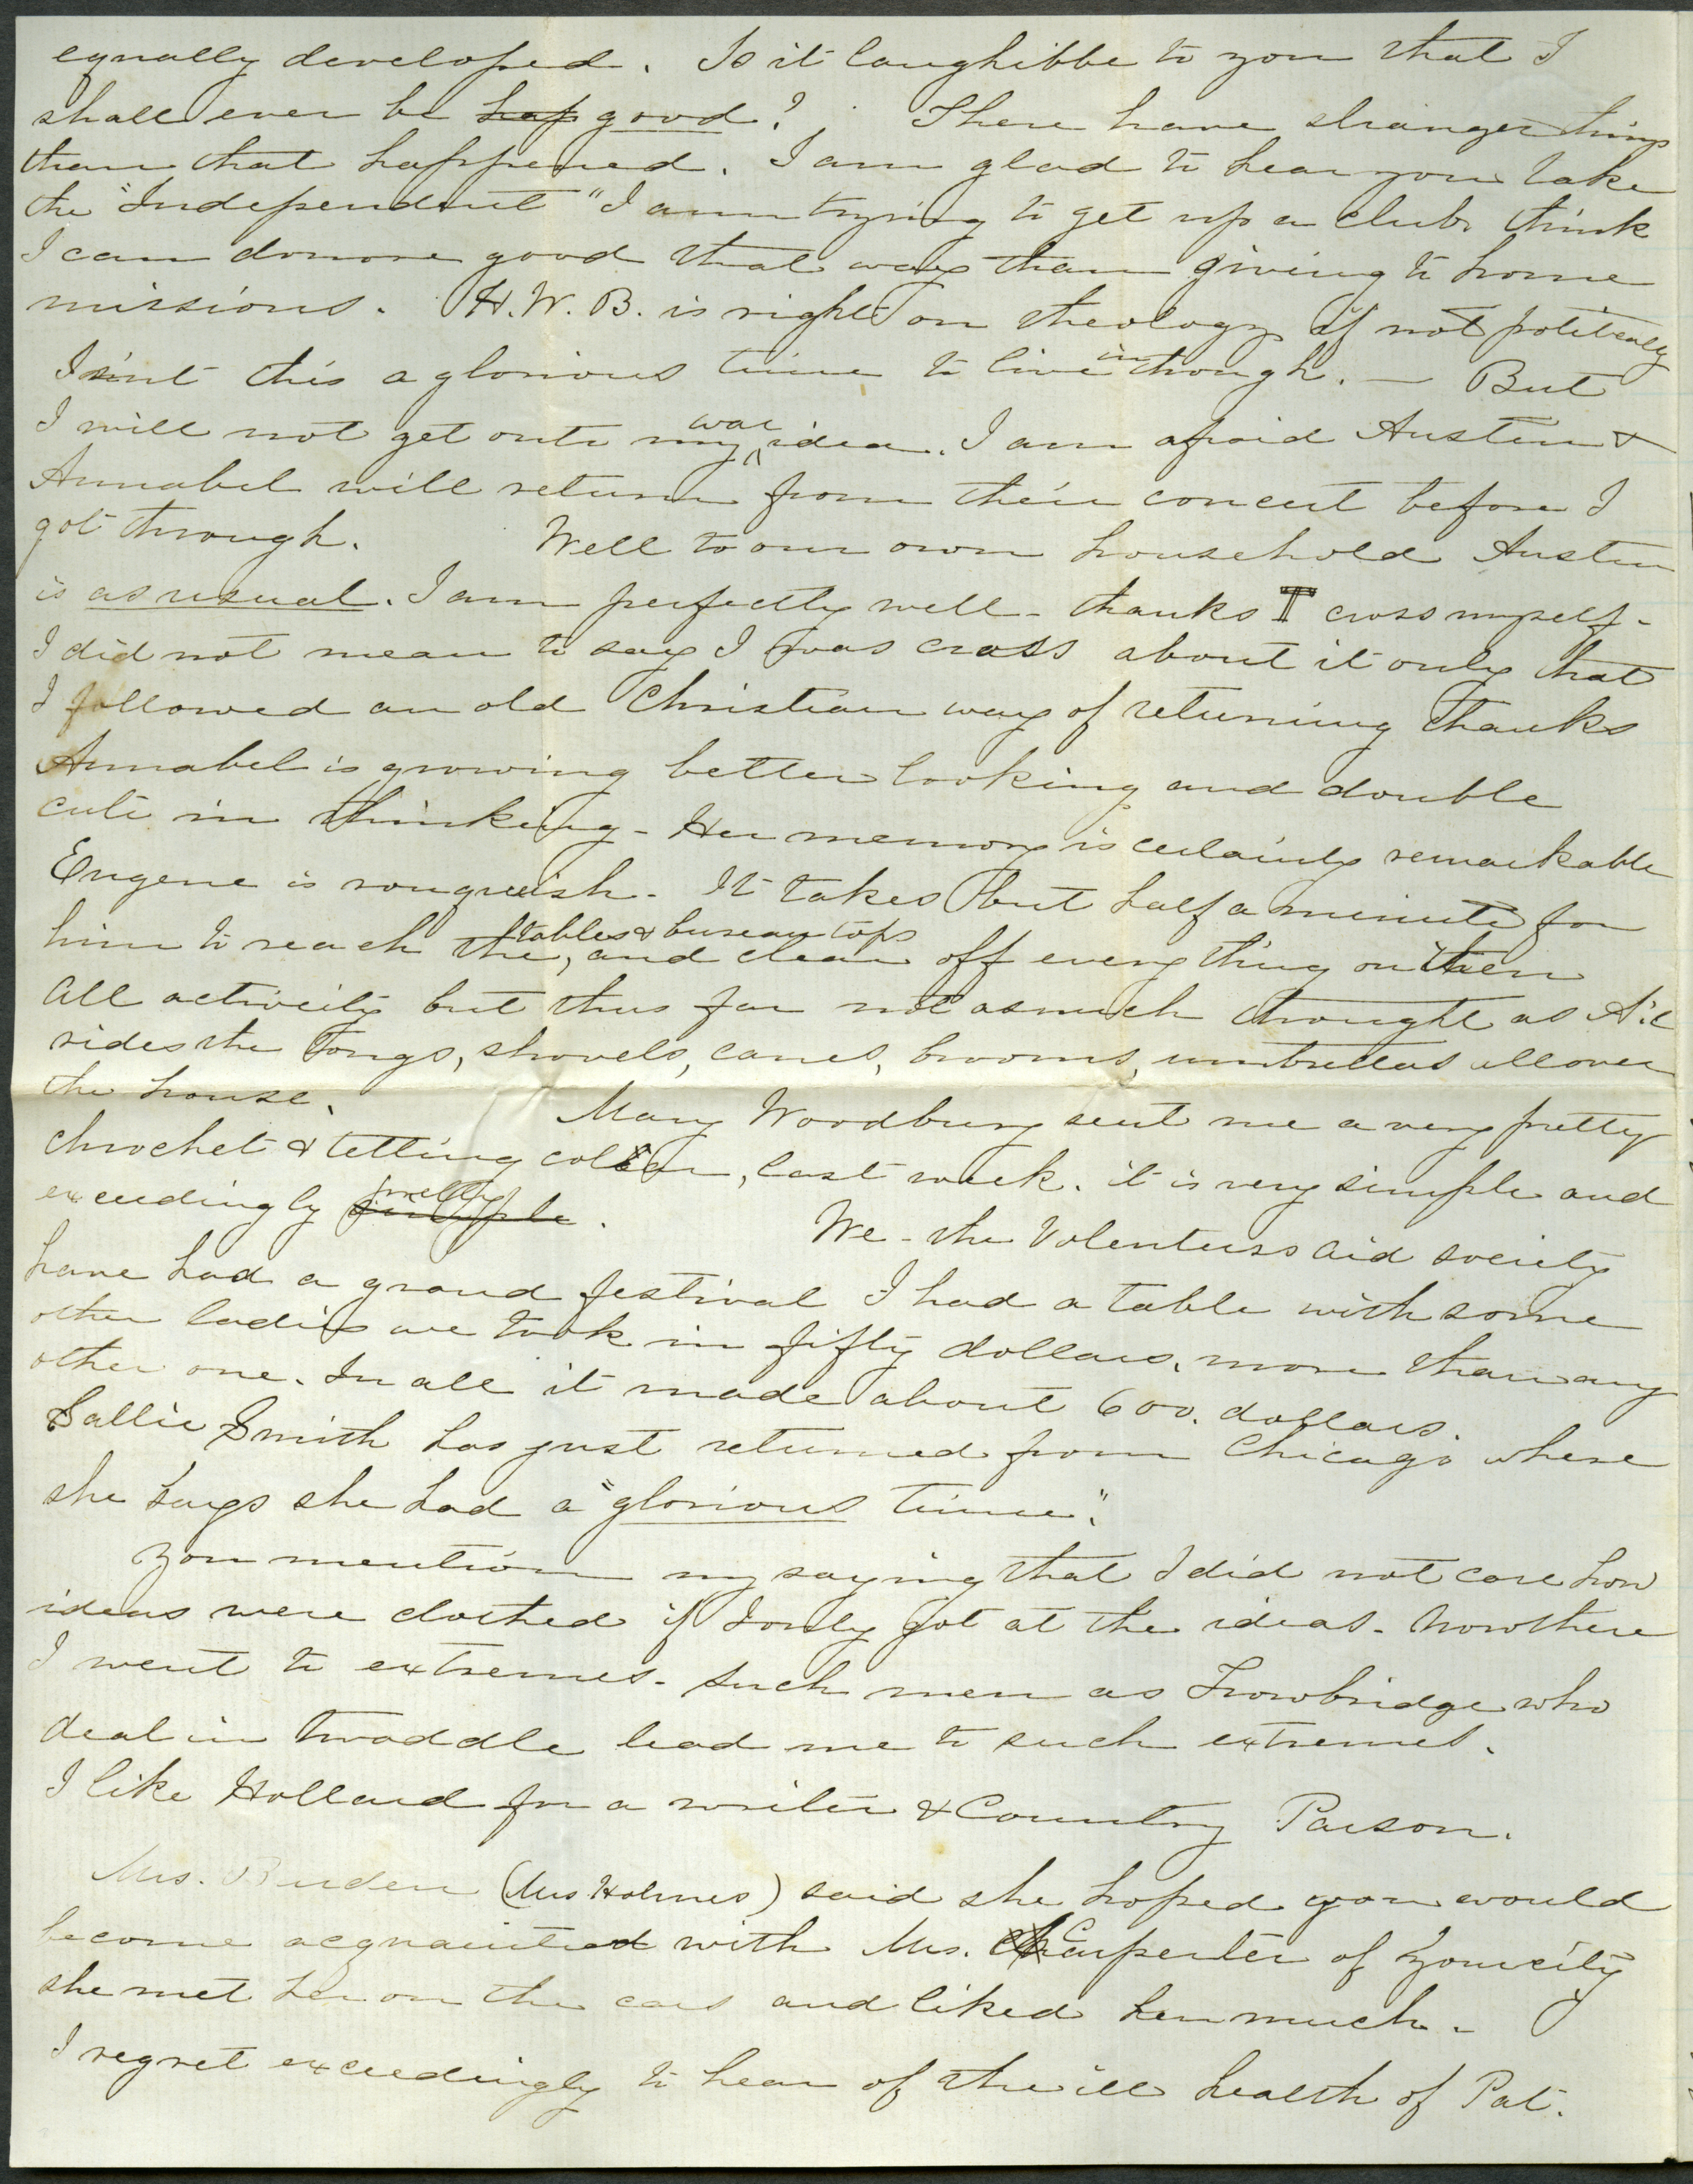 equally developed. Is it laughibbe to you that I
shall ever be hap good? There have stranger things
than that happened. I am glad to hear you take
the "Independent" I am trying to get up a club, think
I can do more good that way than giving to home
missions. H. W. B. is right on theology if not politically
Isint this a glorious time to live in though. — But
I will not get onto my war idea. I am afraid Austin &
Annabel will return from their concert before I
got through. Well to our own household Austin
is as usual. I am perfectly well - thanks I cross myself -
I did not mean to say I was cross about it only that
I followed an old Christian way of returning thanks
Annabel is growing better looking and double
cute in thinking - Her memory is certainly remarkable
Eugene is rougueish. It takes but half a minute for
him to reach the tables & bureau tops, and clear off every thing on them
All activity but thus far not as much thought as A. &
rides the tongs, shovels, canes, brooms, umbrellas all over
the house. Mary Woodbury sent me a very pretty
chrochet & tetting collar, last week. it is very simple and
exceedingly simple pretty.
We - the Volenteers aid society
have had a grand festival I had a table with some
other ladies we took in fifty dollars, more than any
other one. In all it made about 600. dollars.
Sallie Smith has just returned from Chicago where
she says she had a "glorious time".
You mention my saying that I did not care how
ideas were clothed if I only got at the ideas. Now there
I went to extremes. Such men as Trowbridge who
deal in twaddle lead me to such extremes.
I like Holland for a writer & Country Parson.
Mrs. Burden (Mrs Holmes) said she hoped you would
become acquainted with Mrs. Carpenter of your city
she met her on the cars and liked her much.
I regret exceedingly to hear of the ill health of Pat.